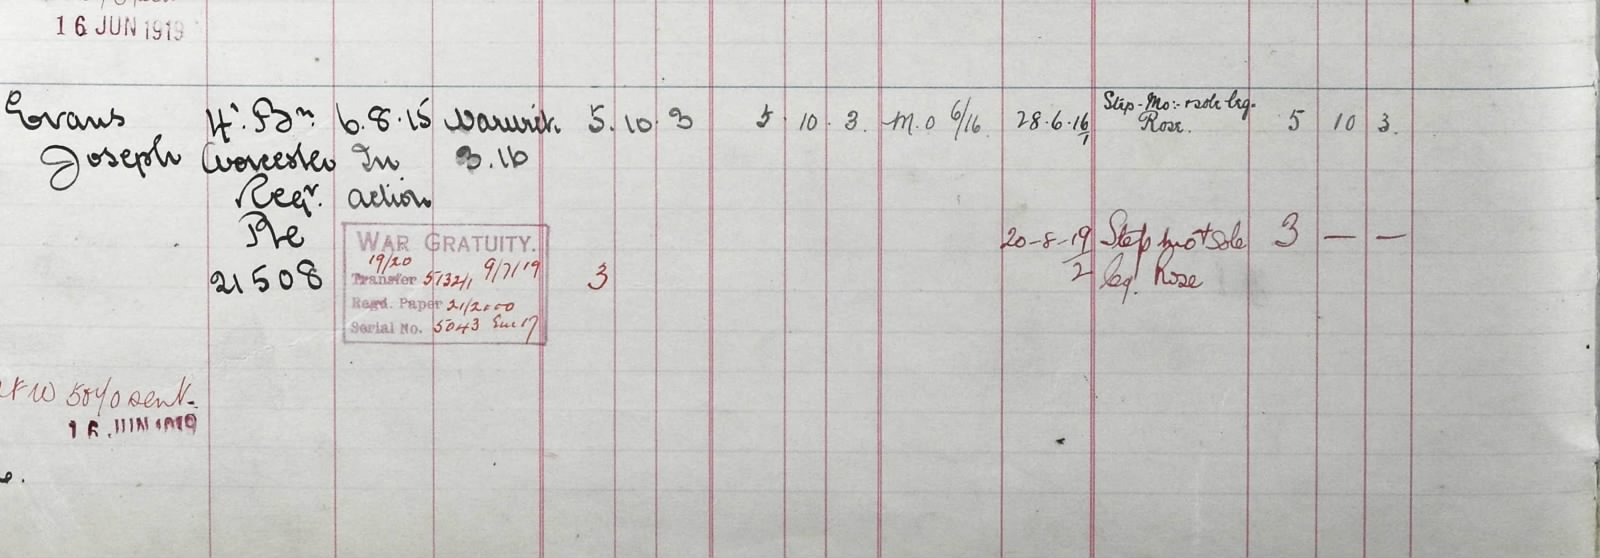 16 JUN 1919
Evans 4th. Bn. 6.8.15 Warwick. 5. 10. 3 5. 10. 3. M.O 6/16. 28.6.16/1 Step-Mo:- & sole leg. 5 10 3.
Rose.
Joseph Worcester In 3.16
Regt. action
Pte
WAR GRATUITY. 20-8-19/2 Step mo & sole 3 — —
19/20
21508 Transfer 5132/1 9/7/19 3 leg. Rose
Regd. Paper 21/2000
Serial No. 5043
W 5070 sent.
16 JUN 1919